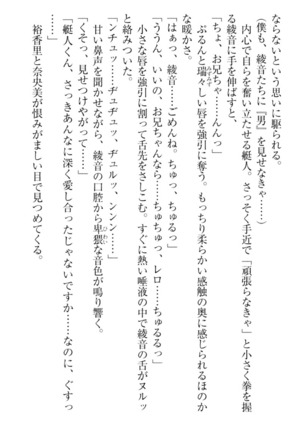 ならないという思いに駆られる。
(僕も、綾音たちに『男』を見せなきゃ……)
内心で自らを奮い立たせる艇人。さっそく手近で「頑張らなきゃ」と小さく拳を握
る綾音に手を伸ばすと、
「ちょ、お兄ちゃ……んんっ」
ぷるんと瑞々しい唇を強引に奪う。もっちり柔らかい感触の奥に感じられるほのか
な暖かさ。
「はぁっ、綾音……ごめんね。ちゅっ、ちゅるっ」
「ううん、いいの、お兄ちゃんなら……ちゅちゅっ、レロ……ちゅるるっ」
小さな唇を強引に割って舌先をさしこむ。すぐに熱い唾液の中で綾音の舌がヌルッ
と絡みついた。
「ンチュッ……ヂュヂュッ、ヂュルッ、ンンン……」
甘い鼻声を聞かせながら、綾音の口腔から卑猥な音色が鳴り響く。
「くそっ、見せつけやがって……」
「艇人くん、さっきあんなに深く愛し合ったじゃないですか……なのに、ぐすっ」
裕香里と奈央美が恨みがましい目で見つめてくる。